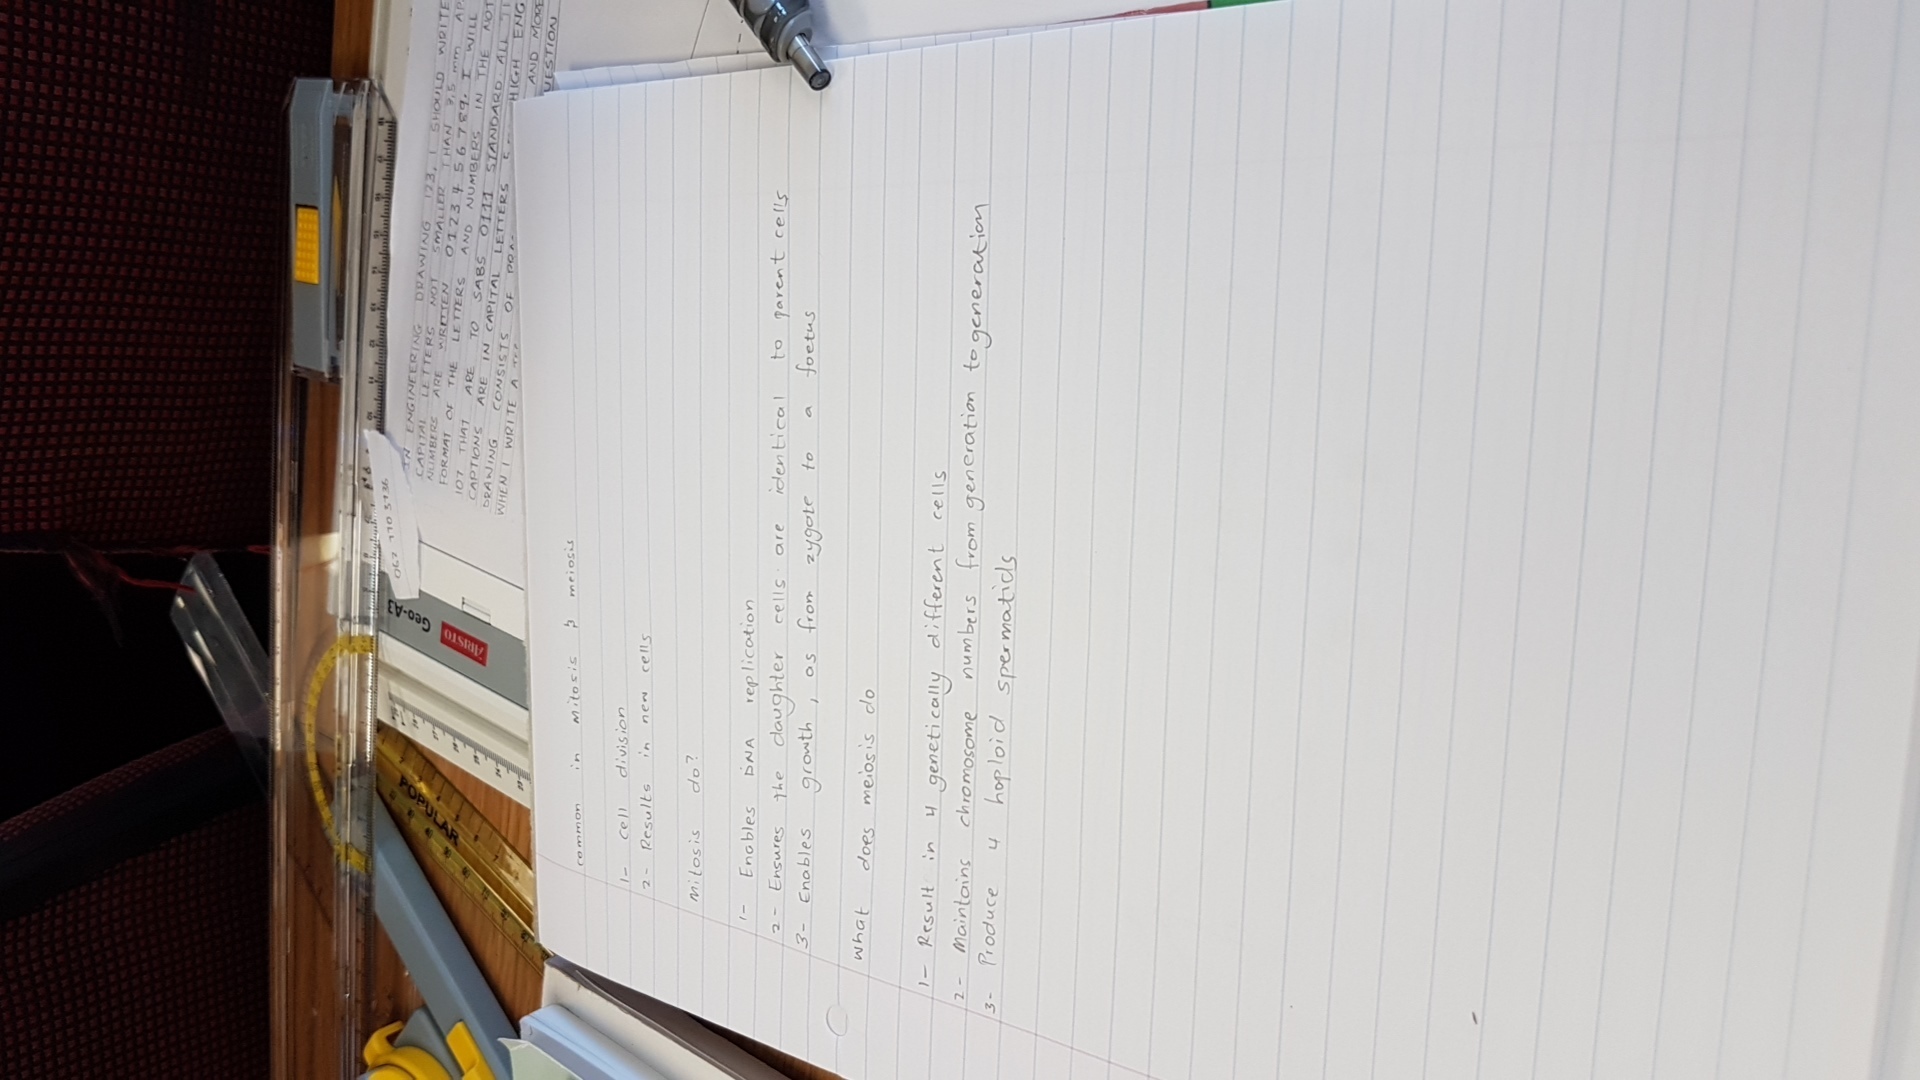 common in Mitosis & meiosis
1- cell division
2- Results in new cells
Mitosis do?
1- Enables DNA replication
2- Ensures the daughter cells are identical to parent cells
3- Enables growth, as from zygote to a foetus
what does meiosis do
1- Result in 4 genetically different cells
2- Maintains chromosome numbers from generation to generation
3- Produce 4 haploid spermatids
IN ENGINEERING DRAWING 123, I SHOULD WRITE
CAPITAL LETTERS NOT SMALLER THAN 3,5 mm
NUMBERS ARE WRITTEN 0123456789. I WILL
FORMAT OF THE LETTERS AND NUMBERS IN THE NOT
107 THAT ARE TO SABS 0111 STANDARD. ALL
CAPTIONS ARE IN CAPITAL LETTERS HIGH ENG
DRAWING CONSISTS OF AND MORE
WHEN I WRITE A
067 110 5736
Geo-A3
ARISTO
POPULAR